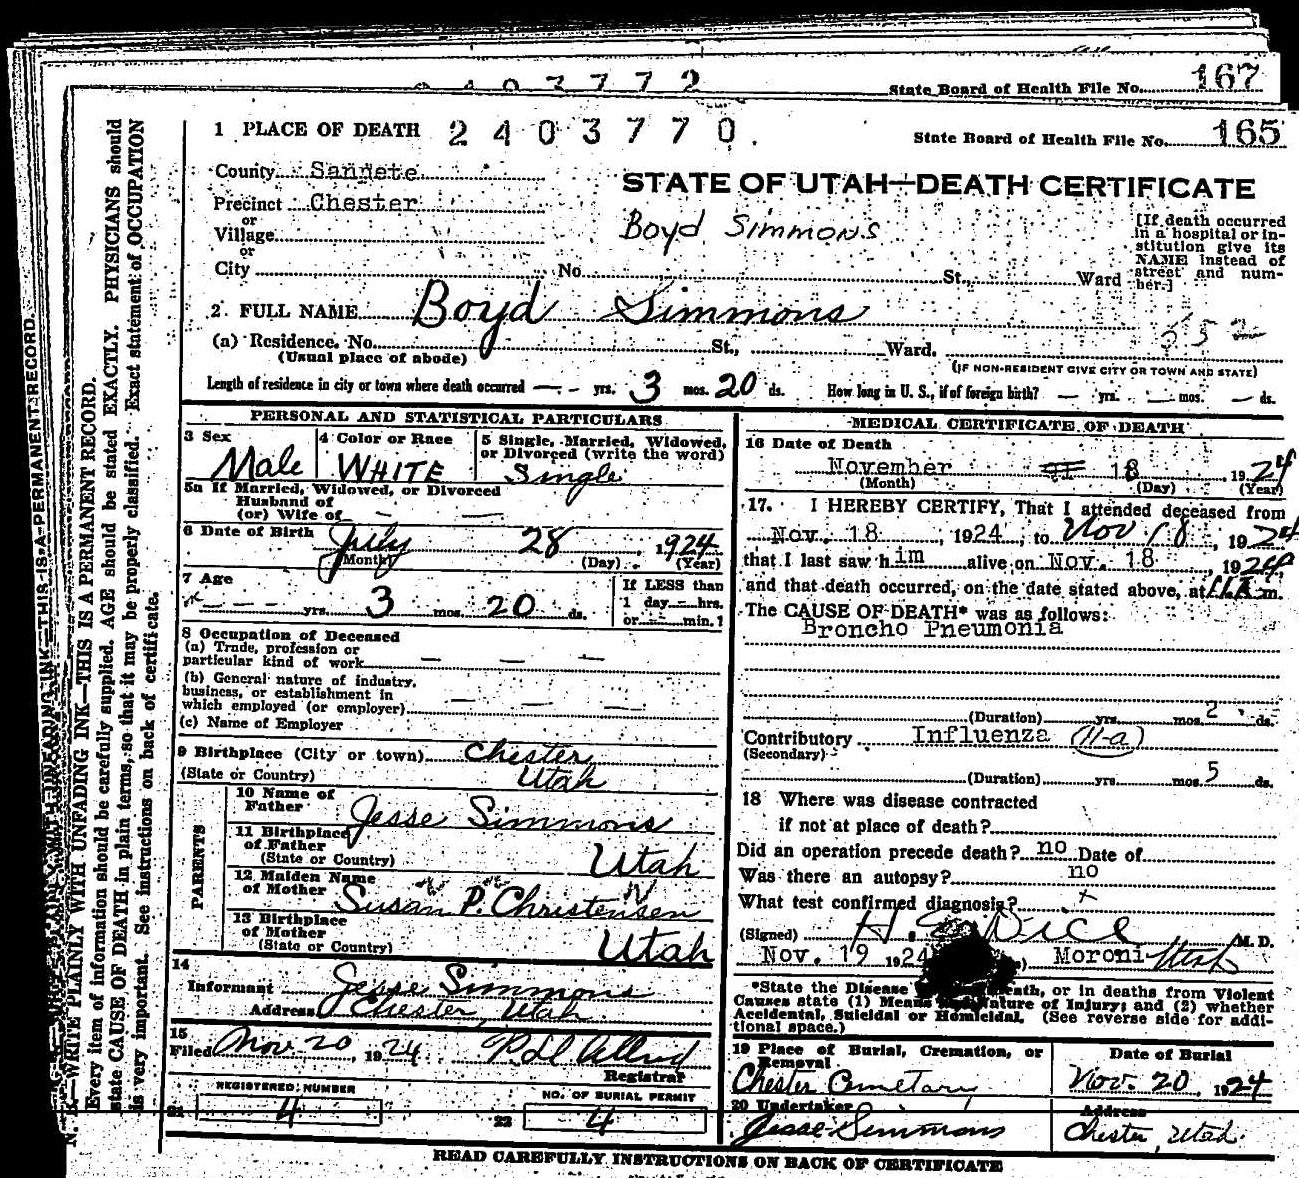 167
State Board of Health File No.
1 PLACE OF DEATH 2403770.
State Board of Health File No. 165
County Sanpete
STATE OF UTAH—DEATH CERTIFICATE
Precinct Chester
or
Village
Boyd Simmons
or
City No. St., Ward
[If death occurred in a hospital or in-
stitution give its
NAME instead of
street and num-
ber.]
2. FULL NAME Boyd Simmons
552
(a) Residence. No. St., Ward.
(Usual place of abode)
(IF NON-RESIDENT GIVE CITY OR TOWN AND STATE)
Length of residence in city or town where death occurred — - yrs. 3 mos. 20 ds. How long in U. S., if of foreign birth? — yrs. — mos. — ds.
PERSONAL AND STATISTICAL PARTICULARS
3 Sex
Male
4 Color or Race
WHITE
5 Single, Married, Widowed,
or Divorced (write the word)
Single
5a If Married, Widowed, or Divorced
Husband of
(or) Wife of — —
6 Date of Birth July 28 1924
(Month) (Day) (Year)
7 Age
— — — yrs. 3 mos. 20 ds.
If LESS than
1 day — hrs.
or — min.?
8 Occupation of Deceased
(a) Trade, profession or
particular kind of work — — —
(b) General nature of industry,
business, or establishment in
which employed (or employer) — — —
(c) Name of Employer
9 Birthplace (City or town) Chester
(State or Country) Utah
PARENTS
10 Name of
Father Jesse Simmons
11 Birthplace
of Father
(State or Country) Utah
12 Maiden Name
of Mother Susan P. Christensen
13 Birthplace
of Mother
(State or Country) Utah
14
Informant Jesse Simmons
Address Chester, Utah
15
Filed Nov 20, 1924
Registrar
REGISTERED NUMBER
21 4
NO. OF BURIAL PERMIT
22 4
MEDICAL CERTIFICATE OF DEATH
16 Date of Death
November 18 1924
(Month) (Day) (Year)
17. I HEREBY CERTIFY, That I attended deceased from
Nov. 18, 1924, to Nov 18, 1924
that I last saw him alive on Nov. 18, 1924
and that death occurred, on the date stated above, at m.
The CAUSE OF DEATH* was as follows:
Broncho Pneumonia
(Duration) yrs. mos. 2 ds.
Contributory Influenza (11-a)
(Secondary)
(Duration) yrs. mos. 5 ds.
18 Where was disease contracted
if not at place of death?
Did an operation precede death? no Date of
Was there an autopsy? no
What test confirmed diagnosis? x
(Signed) H. Dice M. D.
Nov. 19 1924 Moroni Utah
*State the Disease Death, or in deaths from Violent
Causes state (1) Means Nature of Injury; and (2) whether
Accidental, Suicidal or Homicidal. (See reverse side for addi-
tional space.)
19 Place of Burial, Cremation, or
Removal
Chester Cemetary
Date of Burial
Nov. 20, 1924
20 Undertaker
Jesse Simmons
Address
Chester, Utah.
READ CAREFULLY INSTRUCTIONS ON BACK OF CERTIFICATE
N. B.—WRITE PLAINLY WITH UNFADING INK—THIS IS A PERMANENT RECORD.
Every item of information should be carefully supplied. AGE should be stated EXACTLY. PHYSICIANS should
state CAUSE OF DEATH in plain terms, so that it may be properly classified. Exact statement of OCCUPATION
is very important. See instructions on back of certificate.